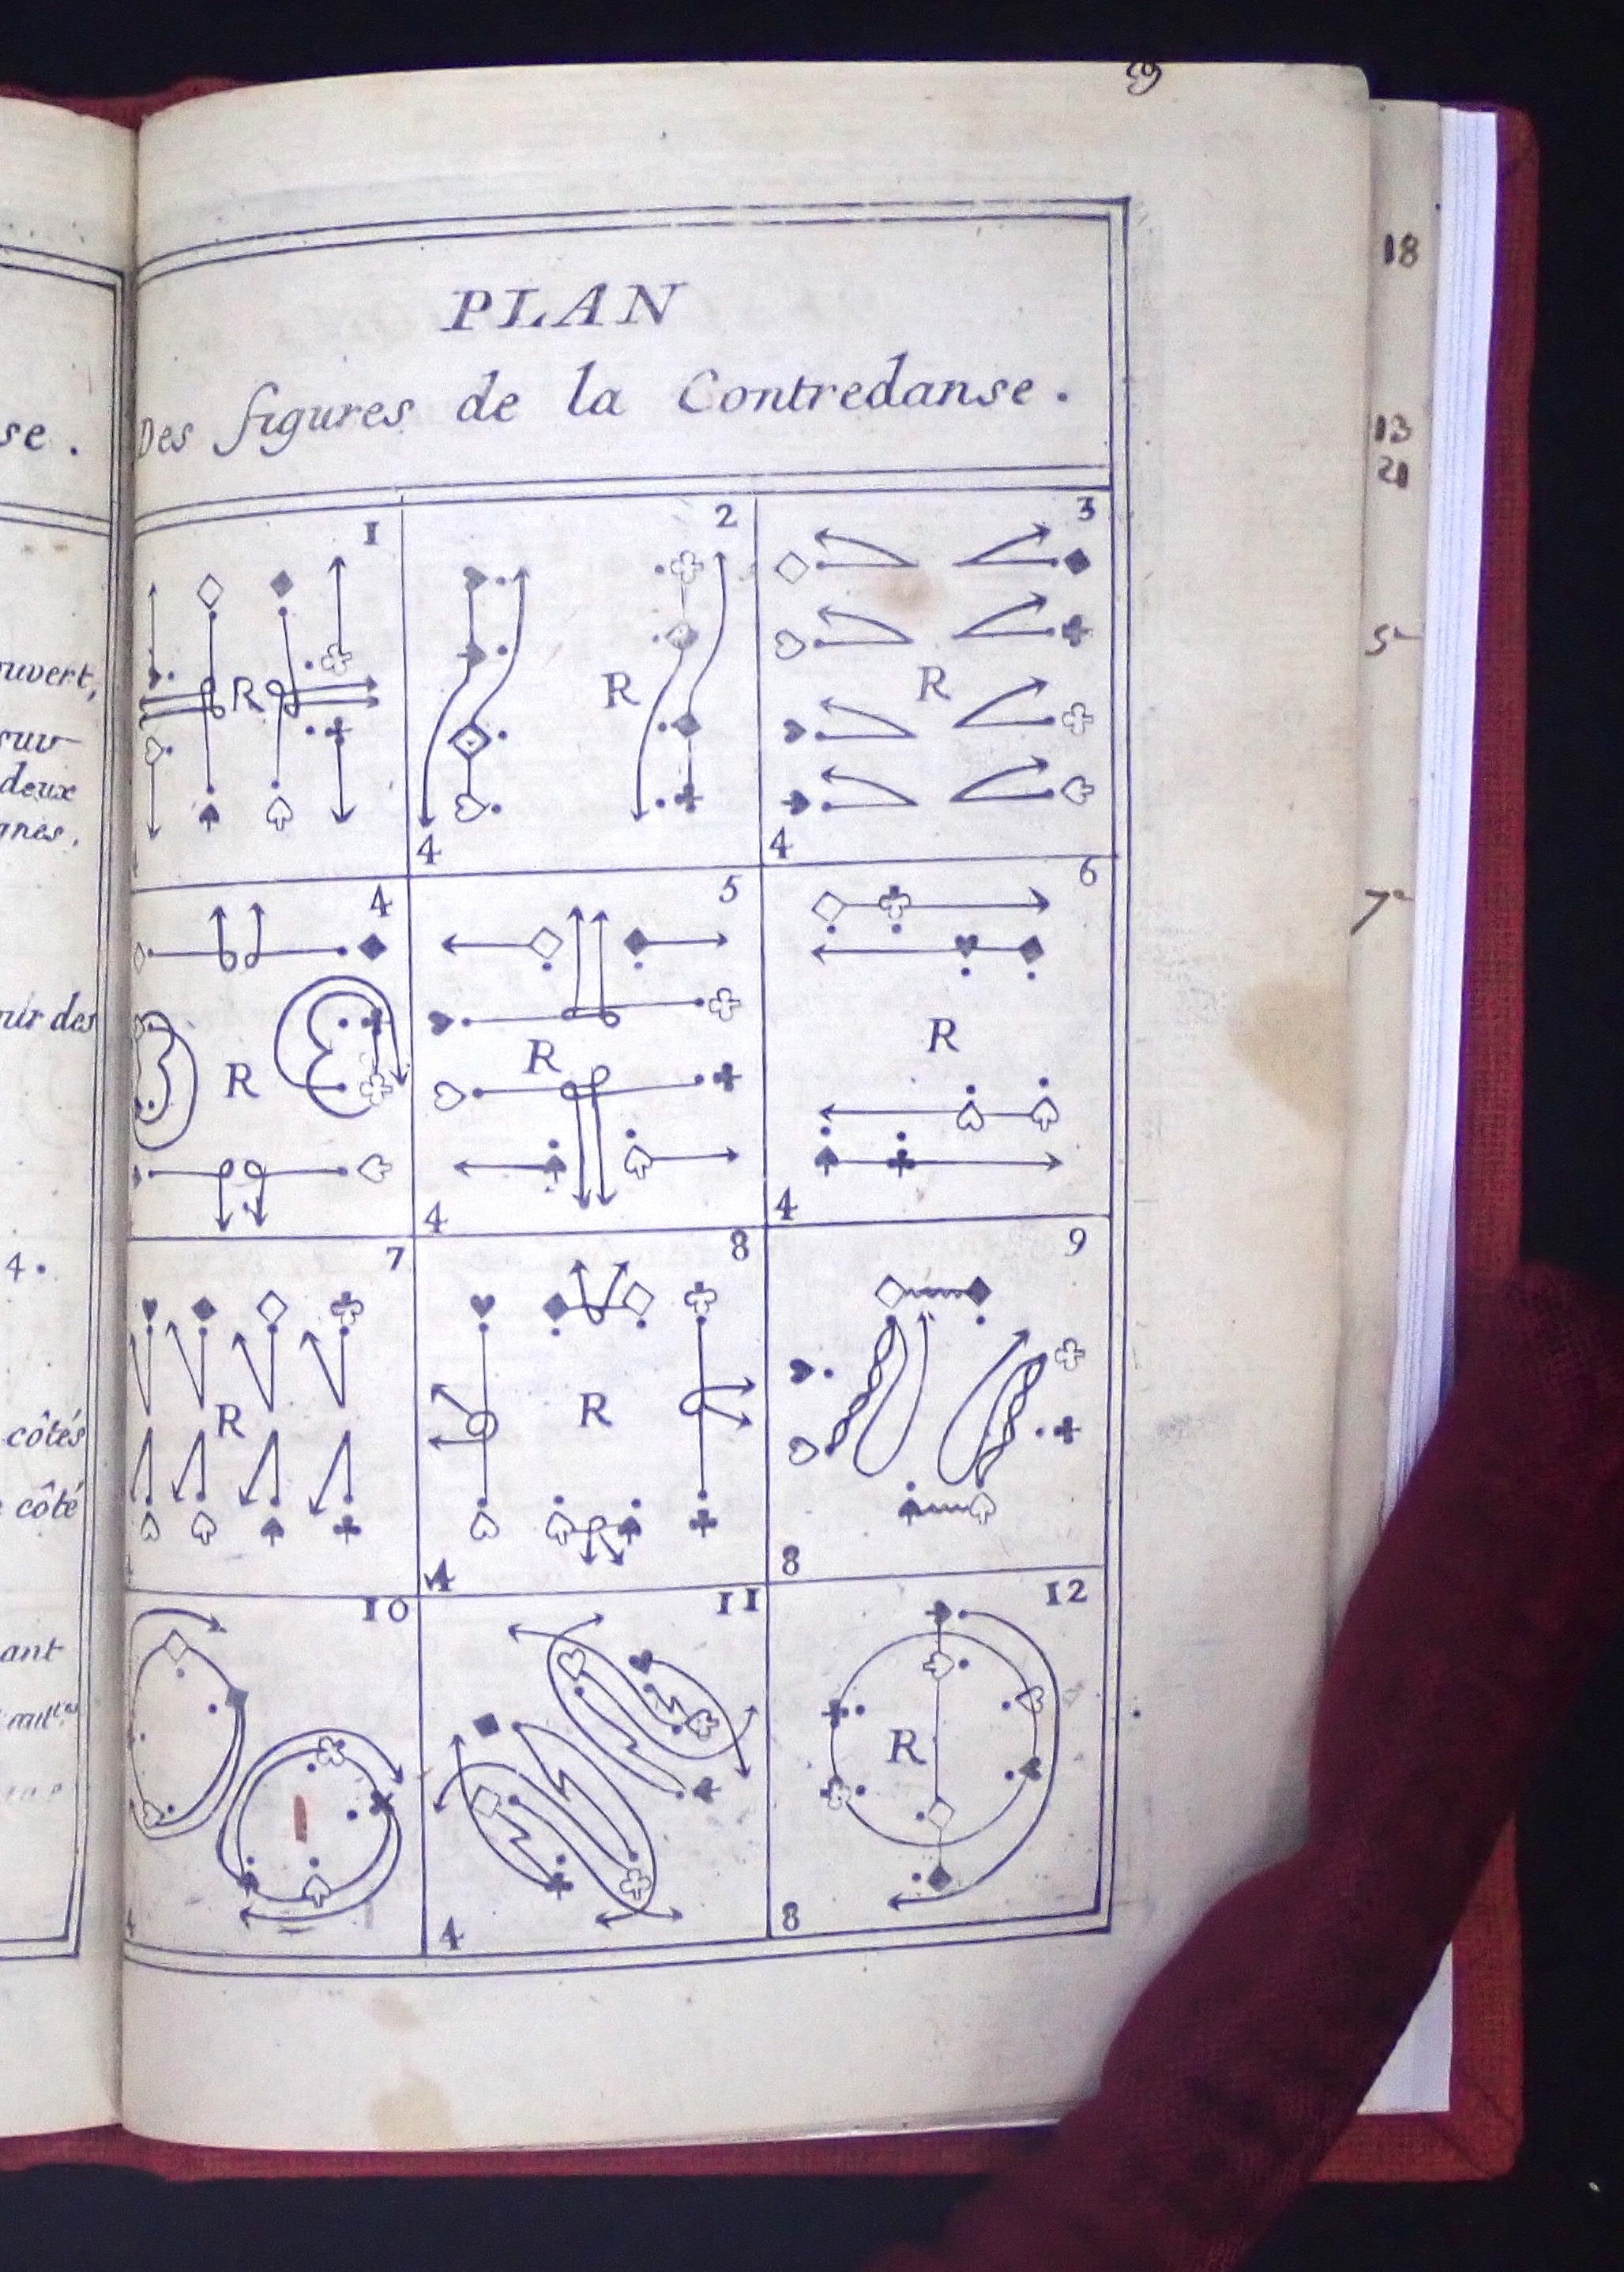 se.
uvert,
suv
deux
gnes.
nir des
4.
côtés
côté
ant
PLAN
Des figures de la Contredanse.
1
R
2
R
4
3
R
4
4
R
5
R
4
6
R
4
7
R
8
R
4
9
8
10
11
4
12
R
8
18
13
21